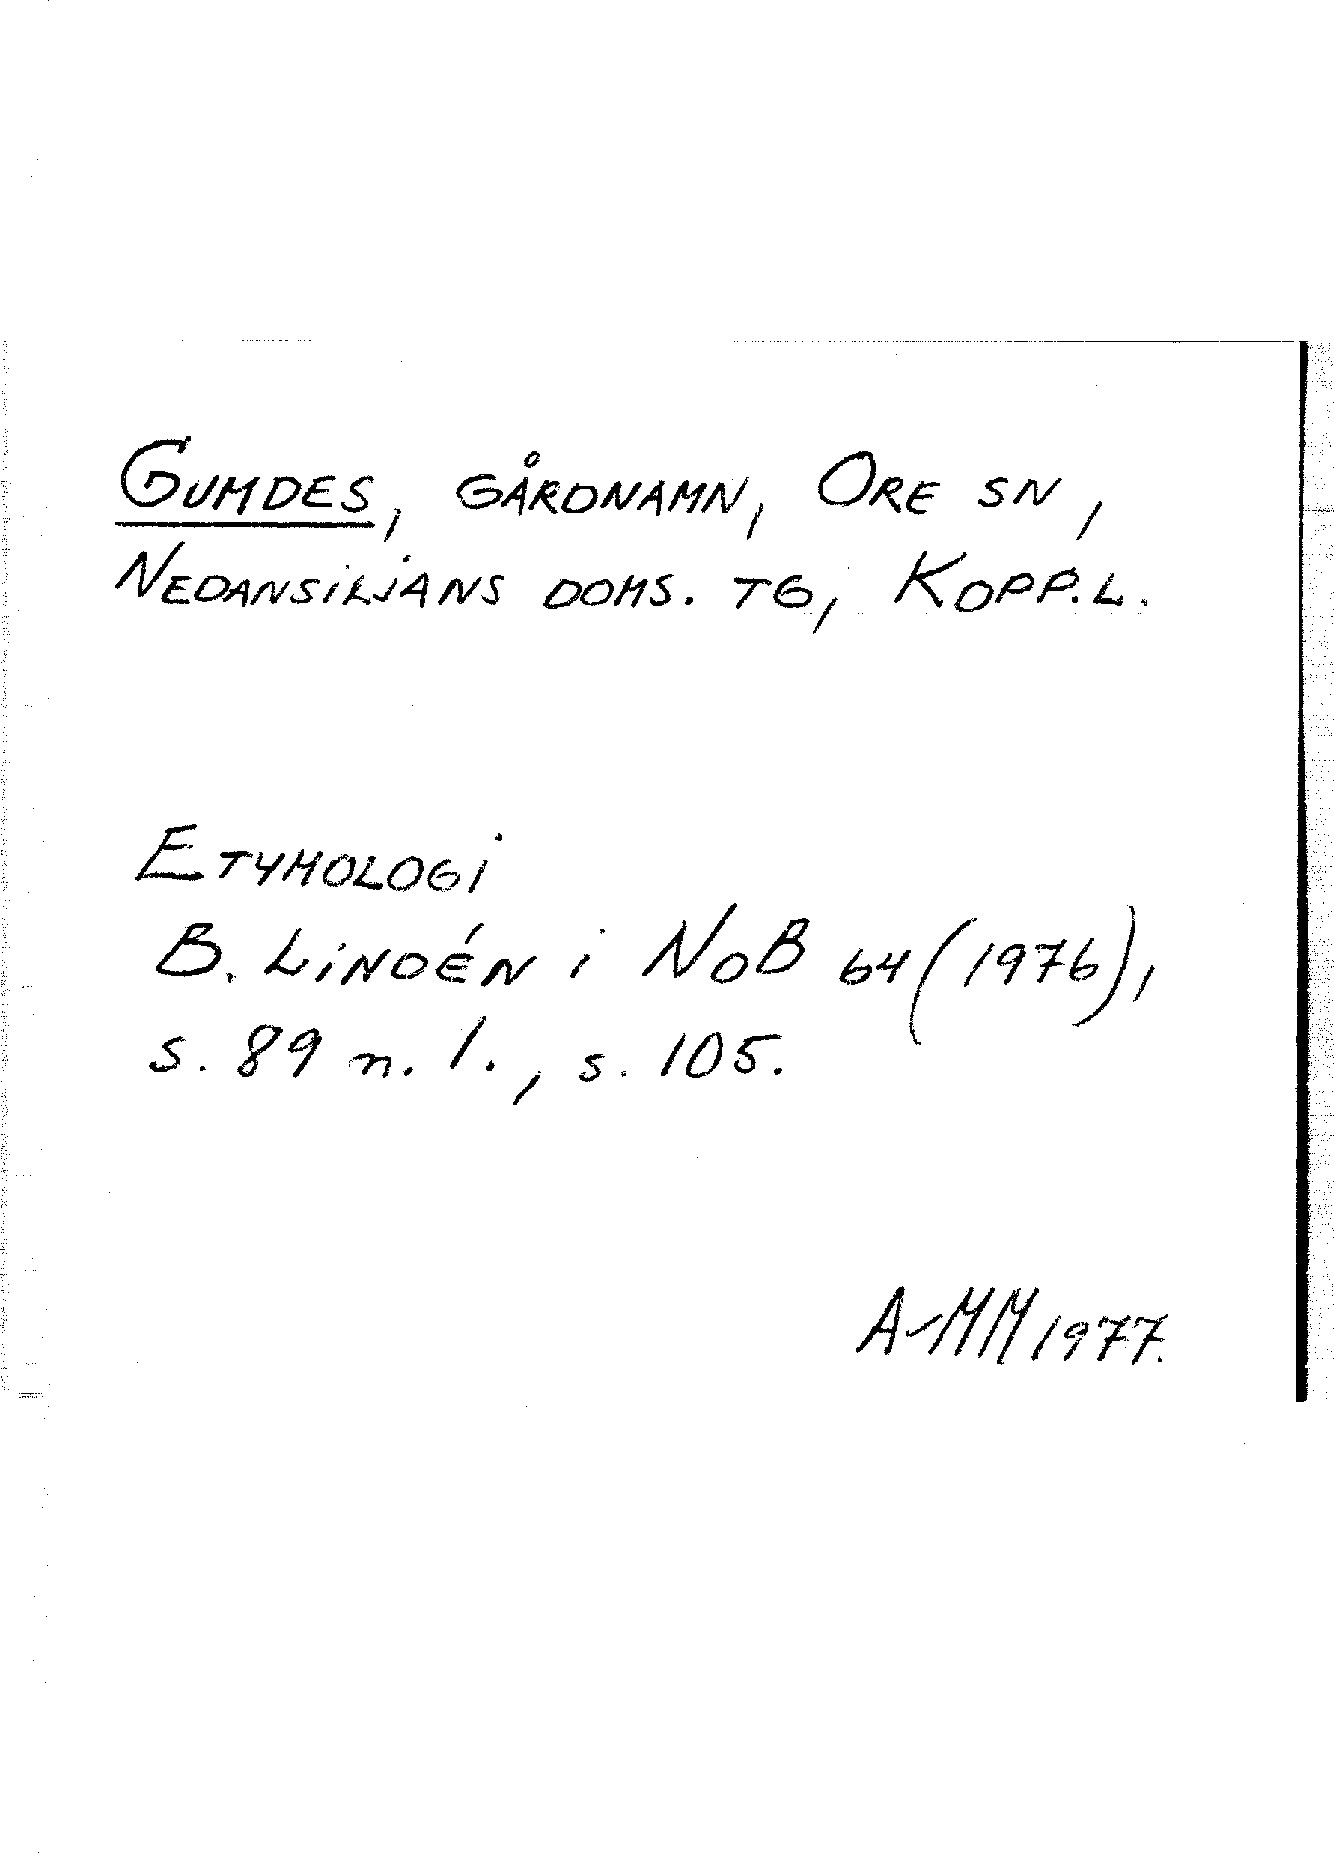 GUMDES, GÅRDNAMN, ORE SN,
NEDANSILJANS DOMS. TG, KOPP. L.
ETYMOLOGI
B. LINDÉN i NoB 64 (1976),
s. 89 n. 1., s. 105.
A-MM 1977.